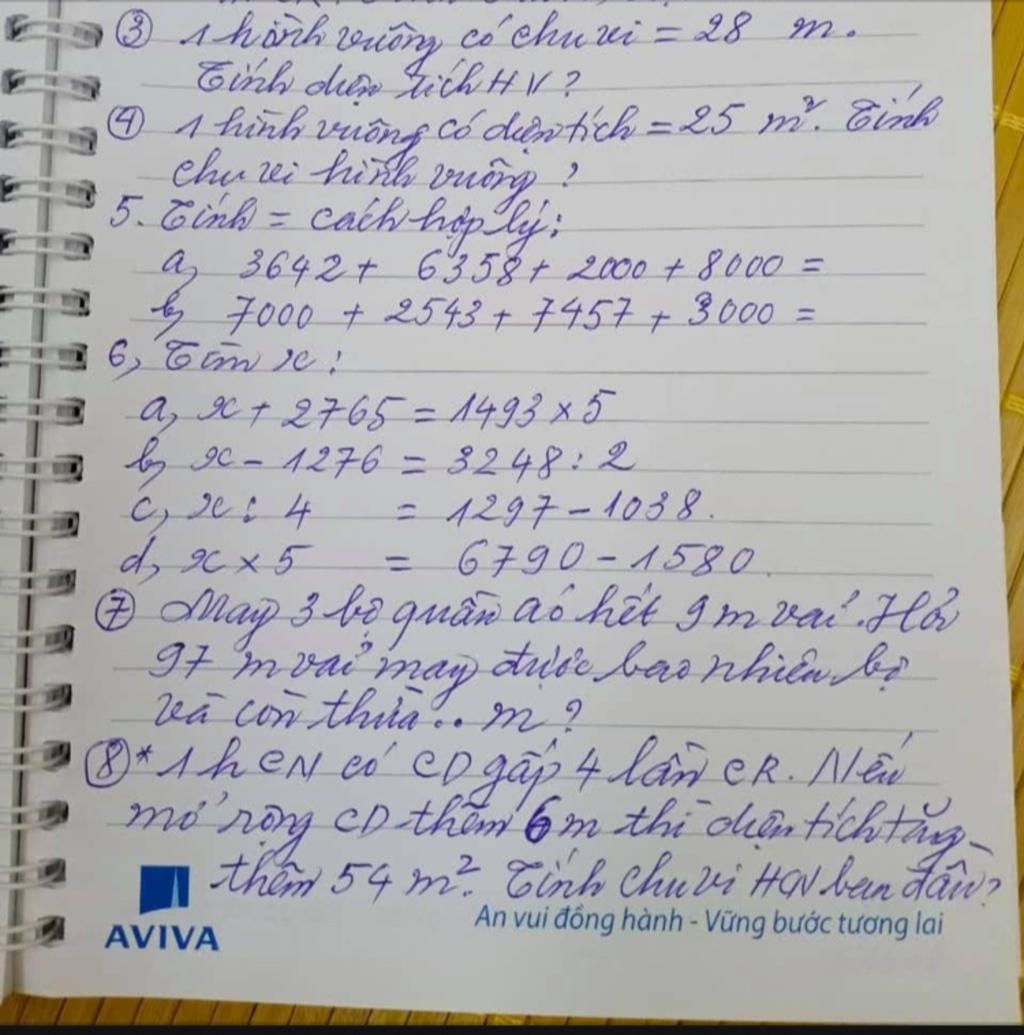 ③ 1 hình vuông có chu vi = 28 m.
Tính diện tích HV?
④ 1 hình vuông có diện tích = 25 m². Tính
chu vi hình vuông?
5. Tính = cách hợp lý:
a, 3642 + 6358 + 2000 + 8000 =
b, 7000 + 2543 + 7457 + 3000 =
6, Tìm x:
a, x + 2765 = 1493 × 5
b, x - 1276 = 3248 : 2
c, x : 4 = 1297 - 1038.
d, x × 5 = 6790 - 1580.
⑦ May 3 bộ quần áo hết 9 m vải. Hỏi
97 m vải may được bao nhiêu bộ
và còn thừa .. m?
⑧* 1 hCN có CD gấp 4 lần CR. Nếu
mở rộng CD thêm 6 m thì diện tích tăng
thêm 54 m². Tính chu vi HCN ban đầu?
An vui đồng hành - Vững bước tương lai
AVIVA